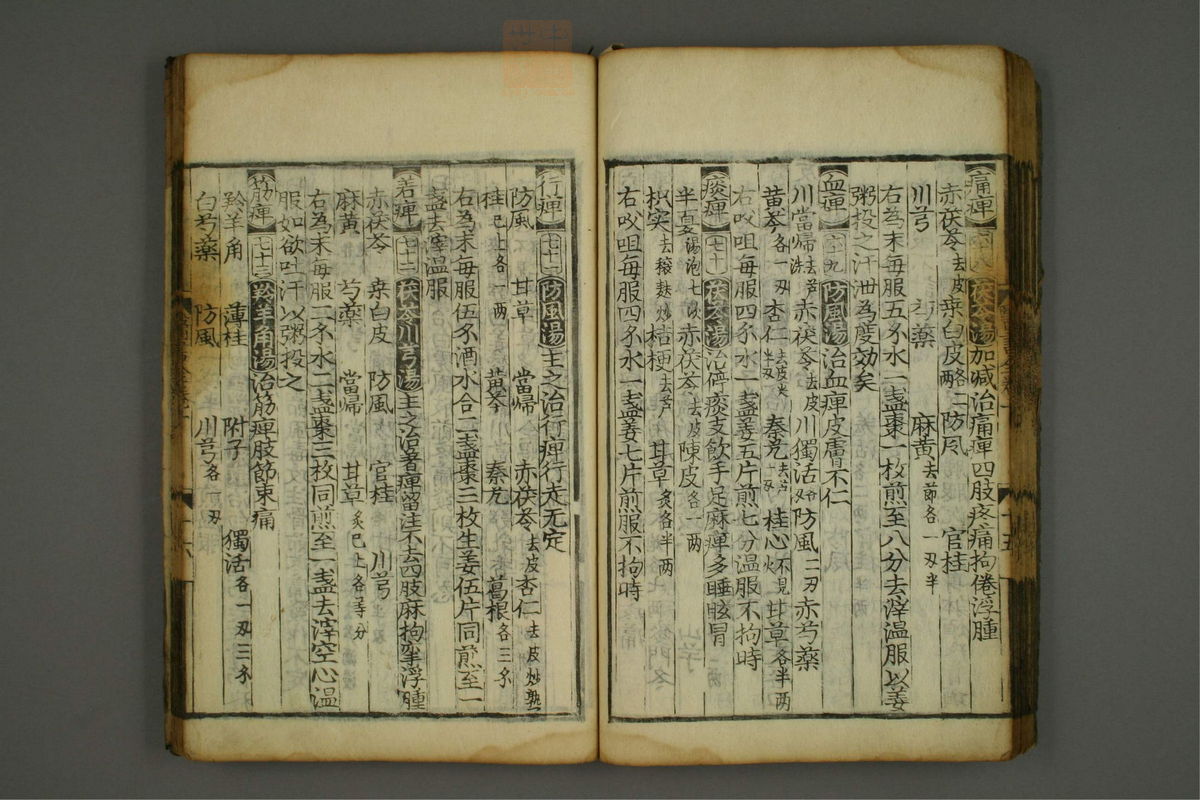 痛痹 六十八 茯苓湯 加减治痛痹四肢疼痛拘倦浮腫
赤茯苓去皮 桒白皮各二两 防风 官桂
川芎 芍藥 麻黄去節各一刄半
右為末每服五分水一盞棗一枚煎至八分去滓温服以姜
粥投之汗泄為度効矣
血痹 六十九 防風湯 治血痹皮膚不仁
川當歸去芦洗 赤茯苓去皮 川獨活 防風二刄 赤芍藥
黄芩各一刄 杏仁去皮尖半刄 秦艽去芦一刄 桂心不見火 甘草各半两
右㕮咀每服四分水一盞姜五片煎七分温服不拘時
痰痹 七十 茯苓湯 治停痰支飲手足麻痹多睡眩冒
半夏湯泡七次 赤茯苓去皮 陳皮各一两
枳实去穰麩炒 桔梗去芦 甘草炙各半两
右㕮咀每服四分水一盞姜七片煎服不拘時
行痹 七十一 防風湯 主之治行痹行走无定
防風 甘草 當帰 赤茯苓去皮 杏仁去皮炒熟
桂已上各一两 黄芩 秦艽 葛根各三分
右為末每服伍分酒水合二盞棗三枚生姜伍片同煎至一
盞去滓温服
着痹 七十二 茯苓川芎湯 主之治着痹留注不去四肢麻拘挛浮腫
赤茯苓 桒白皮 防風 官桂 川芎
麻黄 芍藥 當帰 甘草炙已上各等分
右為末每服二分水二盞棗三枚同煎至一盞去滓空心温
服如欲吐汗以粥投之
筋痹 七十三 羚羊角湯 治筋痹肢節束痛
羚羊角 薄桂 附子 獨活各一刄三分
白芍藥 防風 川芎各一刄